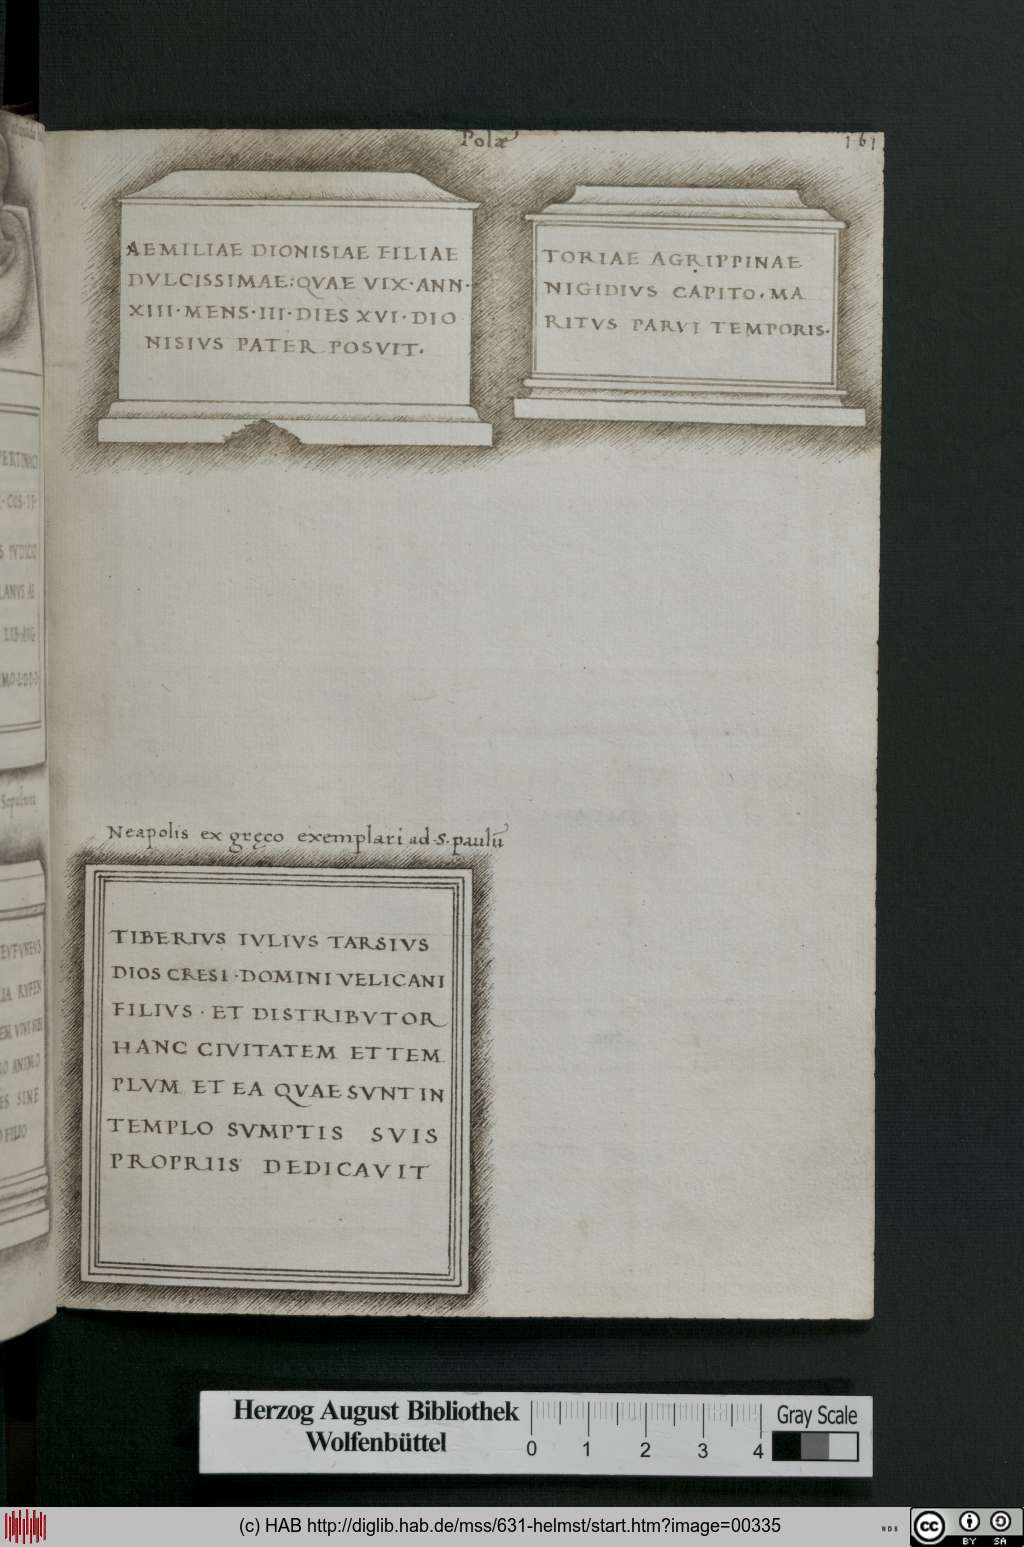 Polæ
161
AEMILIAE DIONISIAE FILIAE
DVLCISSIMAE: QVAE VIX·ANN·
XIII·MENS·III·DIES XVI·DIO
NISIVS PATER POSVIT.
TORIAE AGRIPPINAE
NIGIDIVS CAPITO. MA
RITVS PARVI TEMPORIS.
Neapolis ex gręco exemplari ad·S·paulū
TIBERIVS IVLIVS TARSIVS
DIOS CRESI·DOMINI VELICANI
FILIVS·ET DISTRIBVTOR
HANC CIVITATEM ET TEM
PLVM ET EA QVAE SVNT IN
TEMPLO SVMPTIS SVIS
PROPRIIS DEDICAVIT
PERTINACI
COS·
IVDICO
LANVS AE
LIB·AVG
Sepulnita
RVFEN
VIVI SIBI
ANIMO
ES SINE
FILIO
Herzog August Bibliothek
Wolfenbüttel
0 1 2 3 4
Gray Scale
(c) HAB http://diglib.hab.de/mss/631-helmst/start.htm?image=00335
WDB
cc BY SA